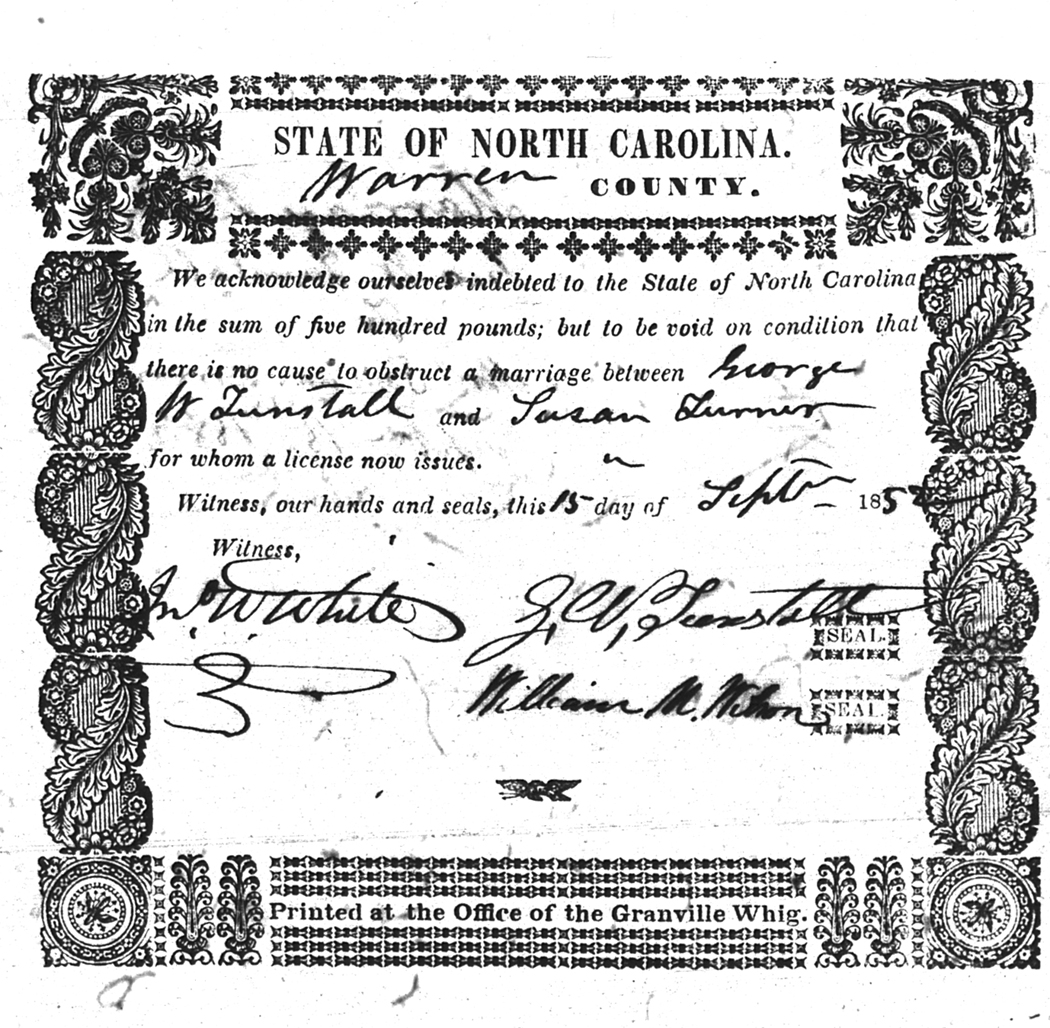 STATE OF NORTH CAROLINA.
Warren COUNTY.
We acknowledge ourselves indebted to the State of North Carolina
in the sum of five hundred pounds; but to be void on condition that
there is no cause to obstruct a marriage between George
W Tunstall and Susan Turner
for whom a license now issues.
Witness, our hands and seals, this 15 day of Septr 185
Witness,
Jno W White G. W. Tunstall
SEAL.
William M. Wilson
SEAL.
Printed at the Office of the Granville Whig.